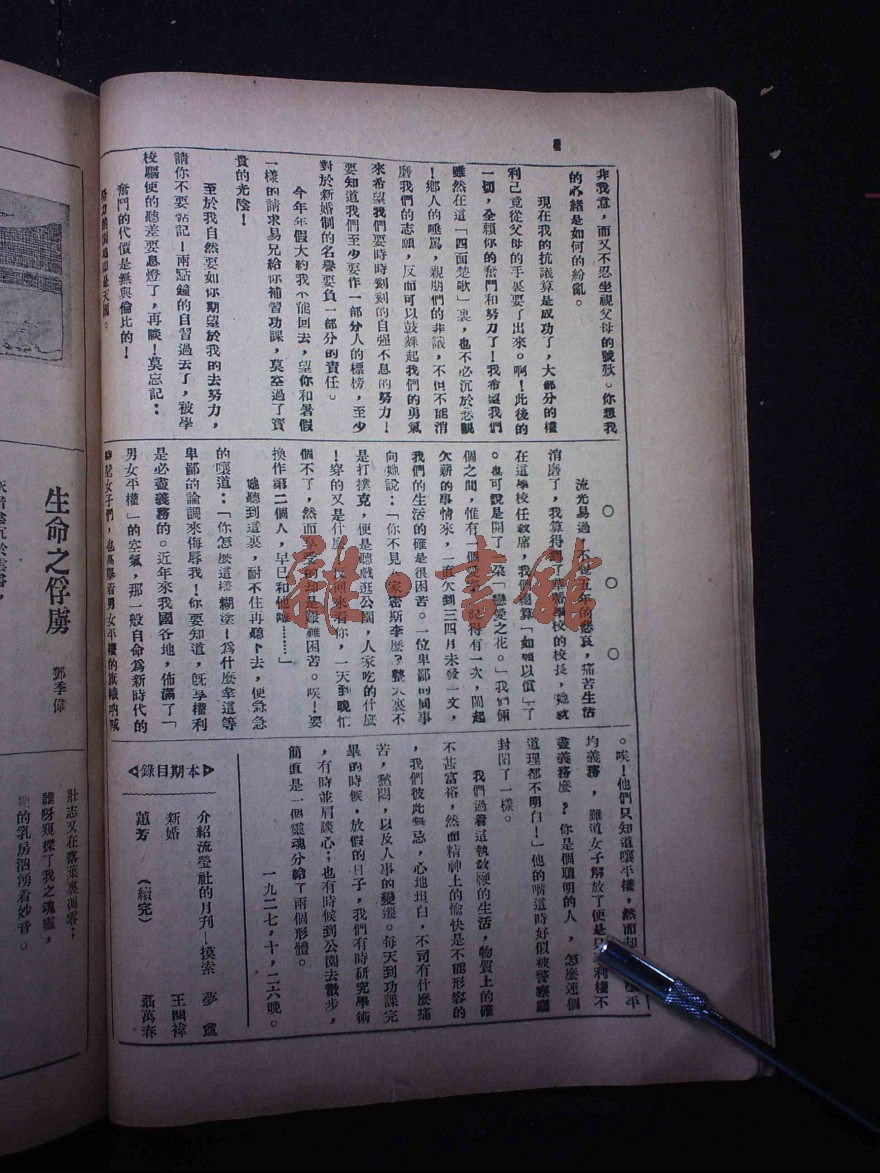 非我意，而又不忍坐視父母的號㳀。你想我
的心緒是如何的紛亂。
現在我的抗議算是成功了，大部分的權
利己竟從父母的手裏要了出來。啊！此後的
一切，全賴你的奮鬥和努力了！我希望我們
雖然在這「四面楚歌」裏，也不必沉於悲觀
！鄉人的唾罵，親朋們的非議，不但不能消
磨我們的志願，反而可以鼓舞起我們的勇氣
來希望我們要時時刻刻的自强不息的努力！
要知道我們至少要作一部分人的標榜，至少
對於新婚制的名譽要負一部分的責任。
今年年假大約我不能回去，望你和暑假
一樣的請求易兄給你補習功課，莫空過了寶
貴的光陰！
至於我自然要如你期望於我的去努力，
請你不要惦記！兩點鐘的自習過去了，被學
校驅使的聽差要息燈了，再談！莫忘記：
奮鬥的代價是無與倫比的！
努力的
○ ○ ○
流光易過，不覺五年的悲哀，痛苦生活
消磨了，我算得到了學校的校長，她就
在這學校任敎席，我們總算「如願以償」了
。也可說是開了一朶「戀愛之花。」我們倆
個之間，惟有一個記得有一次，鬧起
欠薪的事情來，一直欠到三四月未發一文，
我們的生活的確是很困苦。一位卑鄙的同事
向她說：「你不見人家密斯李麽？整天裏不
是打撲克，便是聽戲逛公園，人家吃的什麽
！穿的又是什麽！反何來看你，一天到晚忙
個不了，然而享受的却是艱難困苦。唉！要
換作第二個人，早已和他離………」
她聽到這裏，耐不住再聽下去，便急急
的嚷道：「你怎麽這樣糊塗！爲什麽拿這等
卑鄙的論調來侮辱我！你要知道，旣享權利
是必盡義務的。近年來我國各地，佈滿了「
男女平權」的空氣，那一般自命爲新時代的
女子們，也高擧着男女平權的旗幟吶喊
。唉！他們只知道嚷平權，然而却平
均義務，難道女子解放了便是只利權不
盡義務麽？你是個聰明的人，怎麽連個
道理都不明白！」他的嘴這時好似被警察廳
封閉了一樣。
我們過着這執敎鞭的生活，物質上的確
不甚富裕，然而精神上的愉快是不能形容的
，我們彼此無忌，心地坦白，不司有什麽痛
苦，愁悶，以及人事的變遷。每天到功課完
畢的時候，放假的日子，我們有時研究學術
，有時並肩談心；也有時候到公園去散步，
簡直是一個靈魂分給了兩個形體。
一九二七，十，二六晚。
本期目錄
介紹流螢社的月刊—摸索 夢
新婚 王間褘
蕙芳 （續完） 聶萬春
生命之俘虜
鄧季偉
壯志又在落葉裏凋零；
誰呀窺探了我之魂靈，
她的乳房洶湧着妙音。
雜·書館